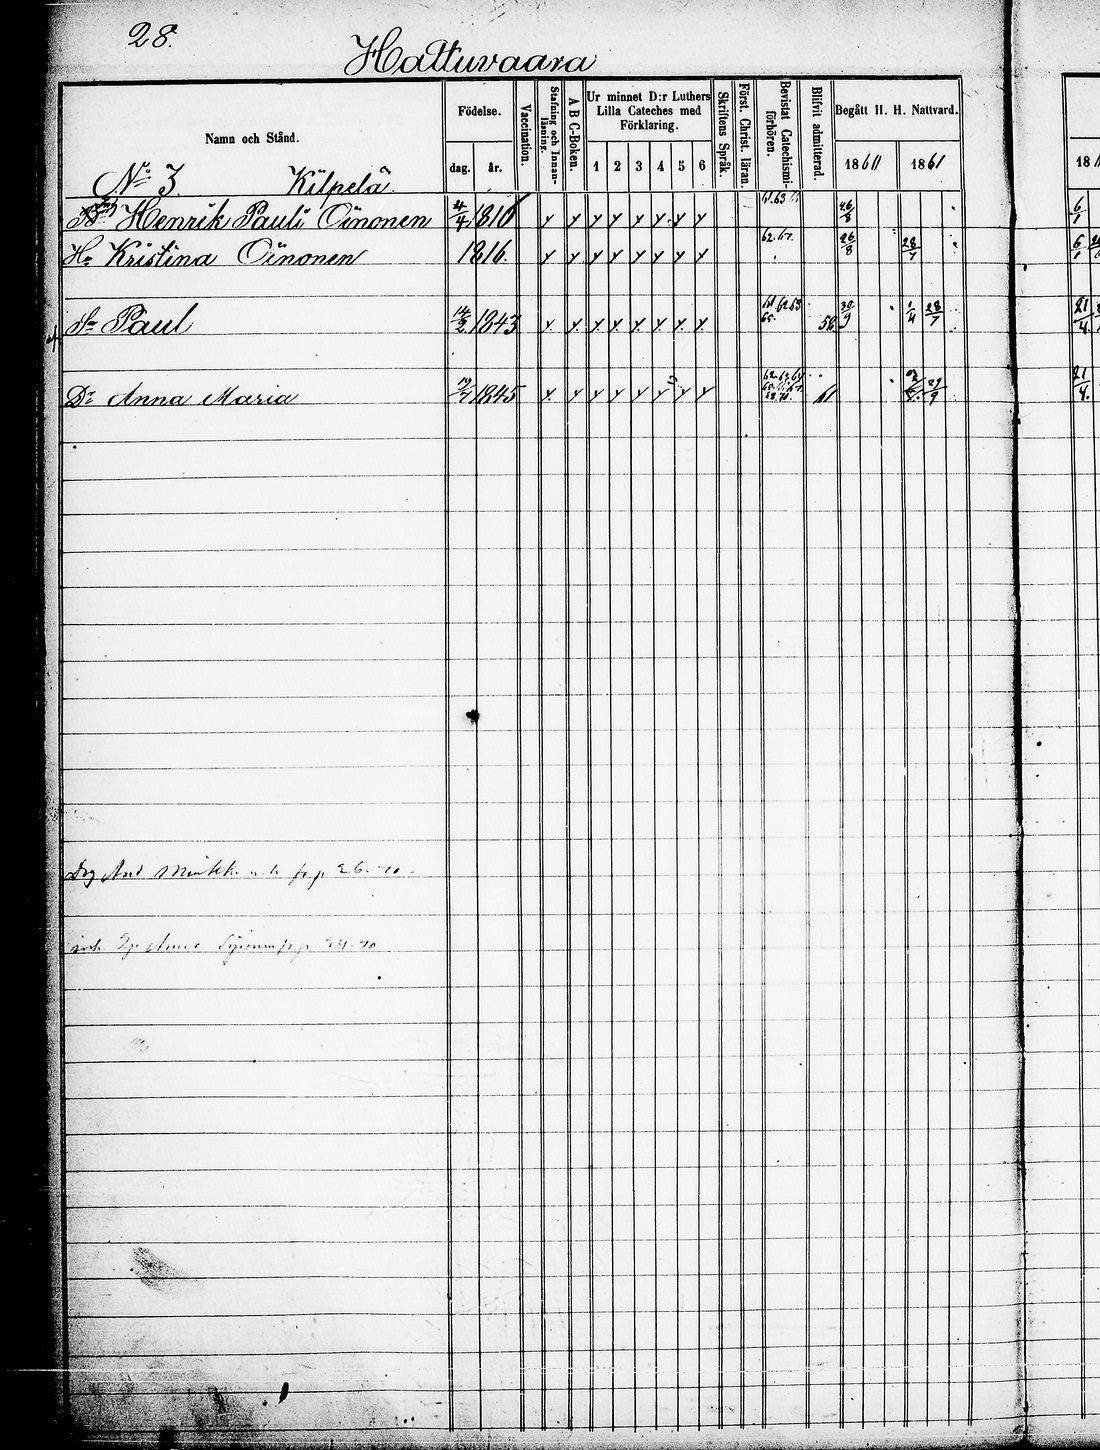 28.
Hattuvaara
Namn och Stånd.
Födelse.
dag. år.
Vaccination.
Stafning och Innanläsning.
A B C-Boken.
Ur minnet D:r Luthers
Lilla Cateches med
Förklaring.
1 2 3 4 5 6
Skriftens Språk.
Först. Christ. läran.
Bevistat Catechismiförhören.
Blifvit admitterad.
Begått H. H. Nattvard.
1860 1861
No 3 Kilpelä.
Henrik Pauli Oinonen 4/4 1816 y y y y y y y y 61.63 26/8 6/1
Hu Kristina Oinonen 1816. y y y y y y y y 62.67. 26/8 28/7 6/1
Sn Paul 1843 y y y y y y y y 61.62.63 65. 58 30/9 1/4 28/7 21/4
Dr Anna Maria 19/7 1845 y y y y y y y y 62.63.64 61 29/9 21/4
26. 70.